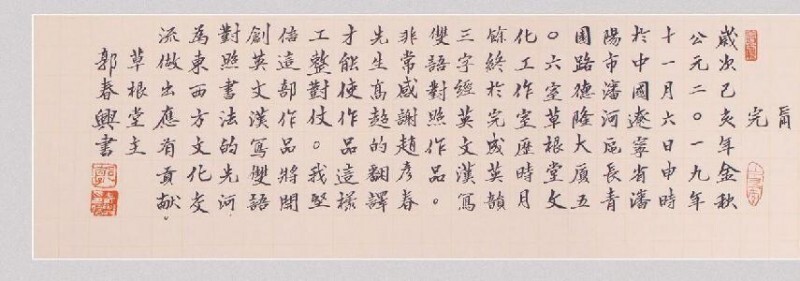 完
歲次己亥年金秋
公元二〇一九年
十一月六日申時
於中國遼寧省瀋
陽市瀋河區長青
路德隆大廈五
〇六室草根堂文
化工作室歷時月
餘終於完成英韻
三字經英文漢寫
雙語對照作品。
非常感謝趙彥春
先生高超的翻譯
才能使作品這樣
工整對仗。我堅
信這部作品將開
創英文漢寫雙語
對照書法的先河
為東西方文化交
流做出應有貢獻.
草根堂主
郭春興書